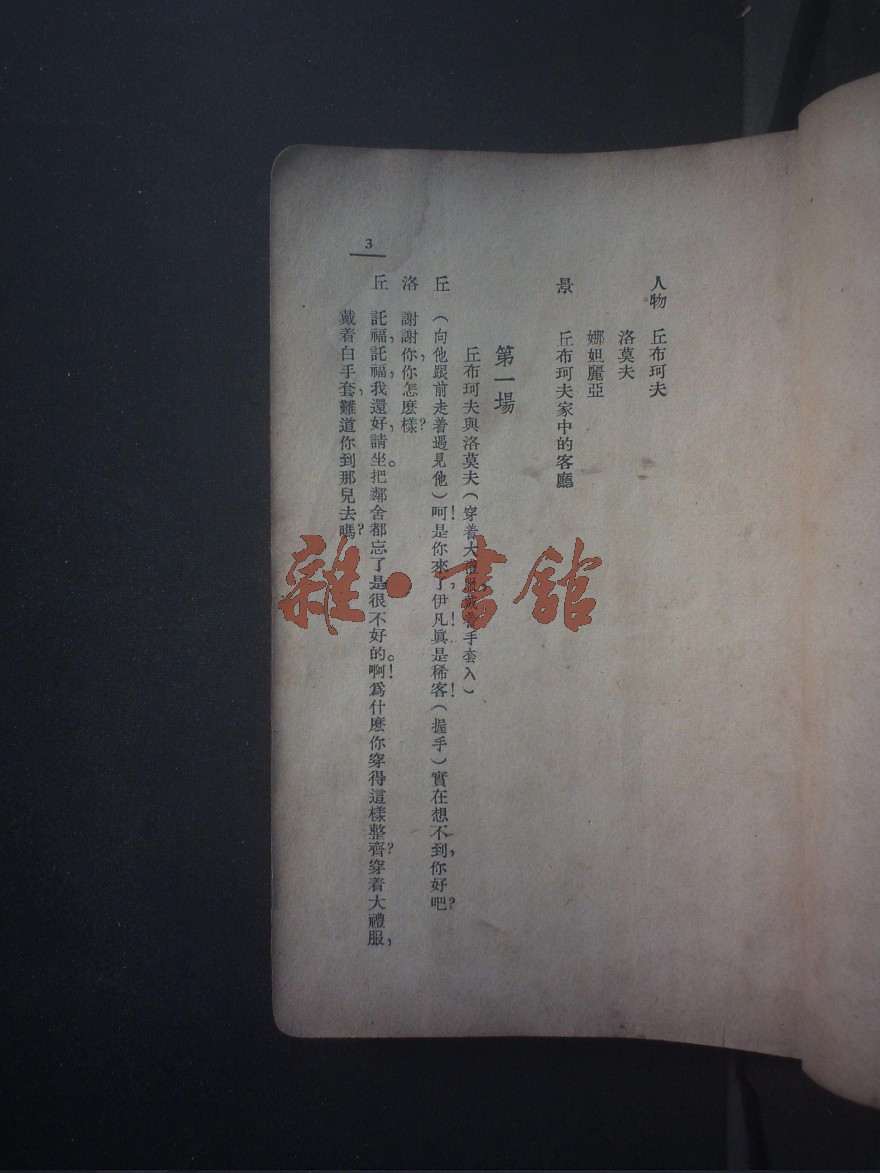 人物　丘布珂夫
洛莫夫
娜妲麗亞
景　丘布珂夫家中的客廳
第一場
丘布珂夫與洛莫夫(穿着大禮服戴着手套入)
丘　(向他跟前走着遇見他)呵!是你來了,伊凡!眞是稀客!(握手)實在想不到,你好吧?
洛　謝謝,你你怎麽樣?
丘　託福,託福,我還好,請坐。把鄰舍都忘了是很不好的。啊!爲什麽你穿得這樣整齊?穿着大禮服,
戴着白手套,難道你到那兒去嗎?
3
雜·書館